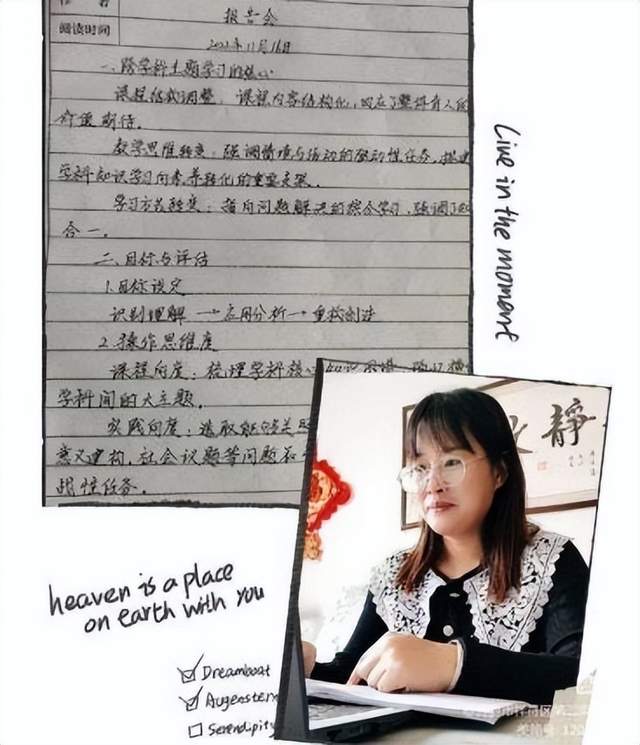 报告会
阅读时间
2022年11月16日
一、跨学科主题学习的核心
课程结构调整：课程内容结构化，回应了整体育人的
价值期待。
教学思维转变：强调情境与活动的驱动性任务，搭建
学科知识学习向素养转化的重要支架。
学习方式转变：指向问题解决的综合学习，强调了知
合一。
二、目标与评估
1.目标设定
识别理解 → 应用分析 → 重构创造
2.操作思维度
课程向度：梳理学科核心
学科间的大主题。
实践向度：选取能够关联
意义建构，社会议题等问题和
战性任务。
Live in the moment
静
heaven is a place
on earth with you
Dreamboat
Augenstern
Serendipity